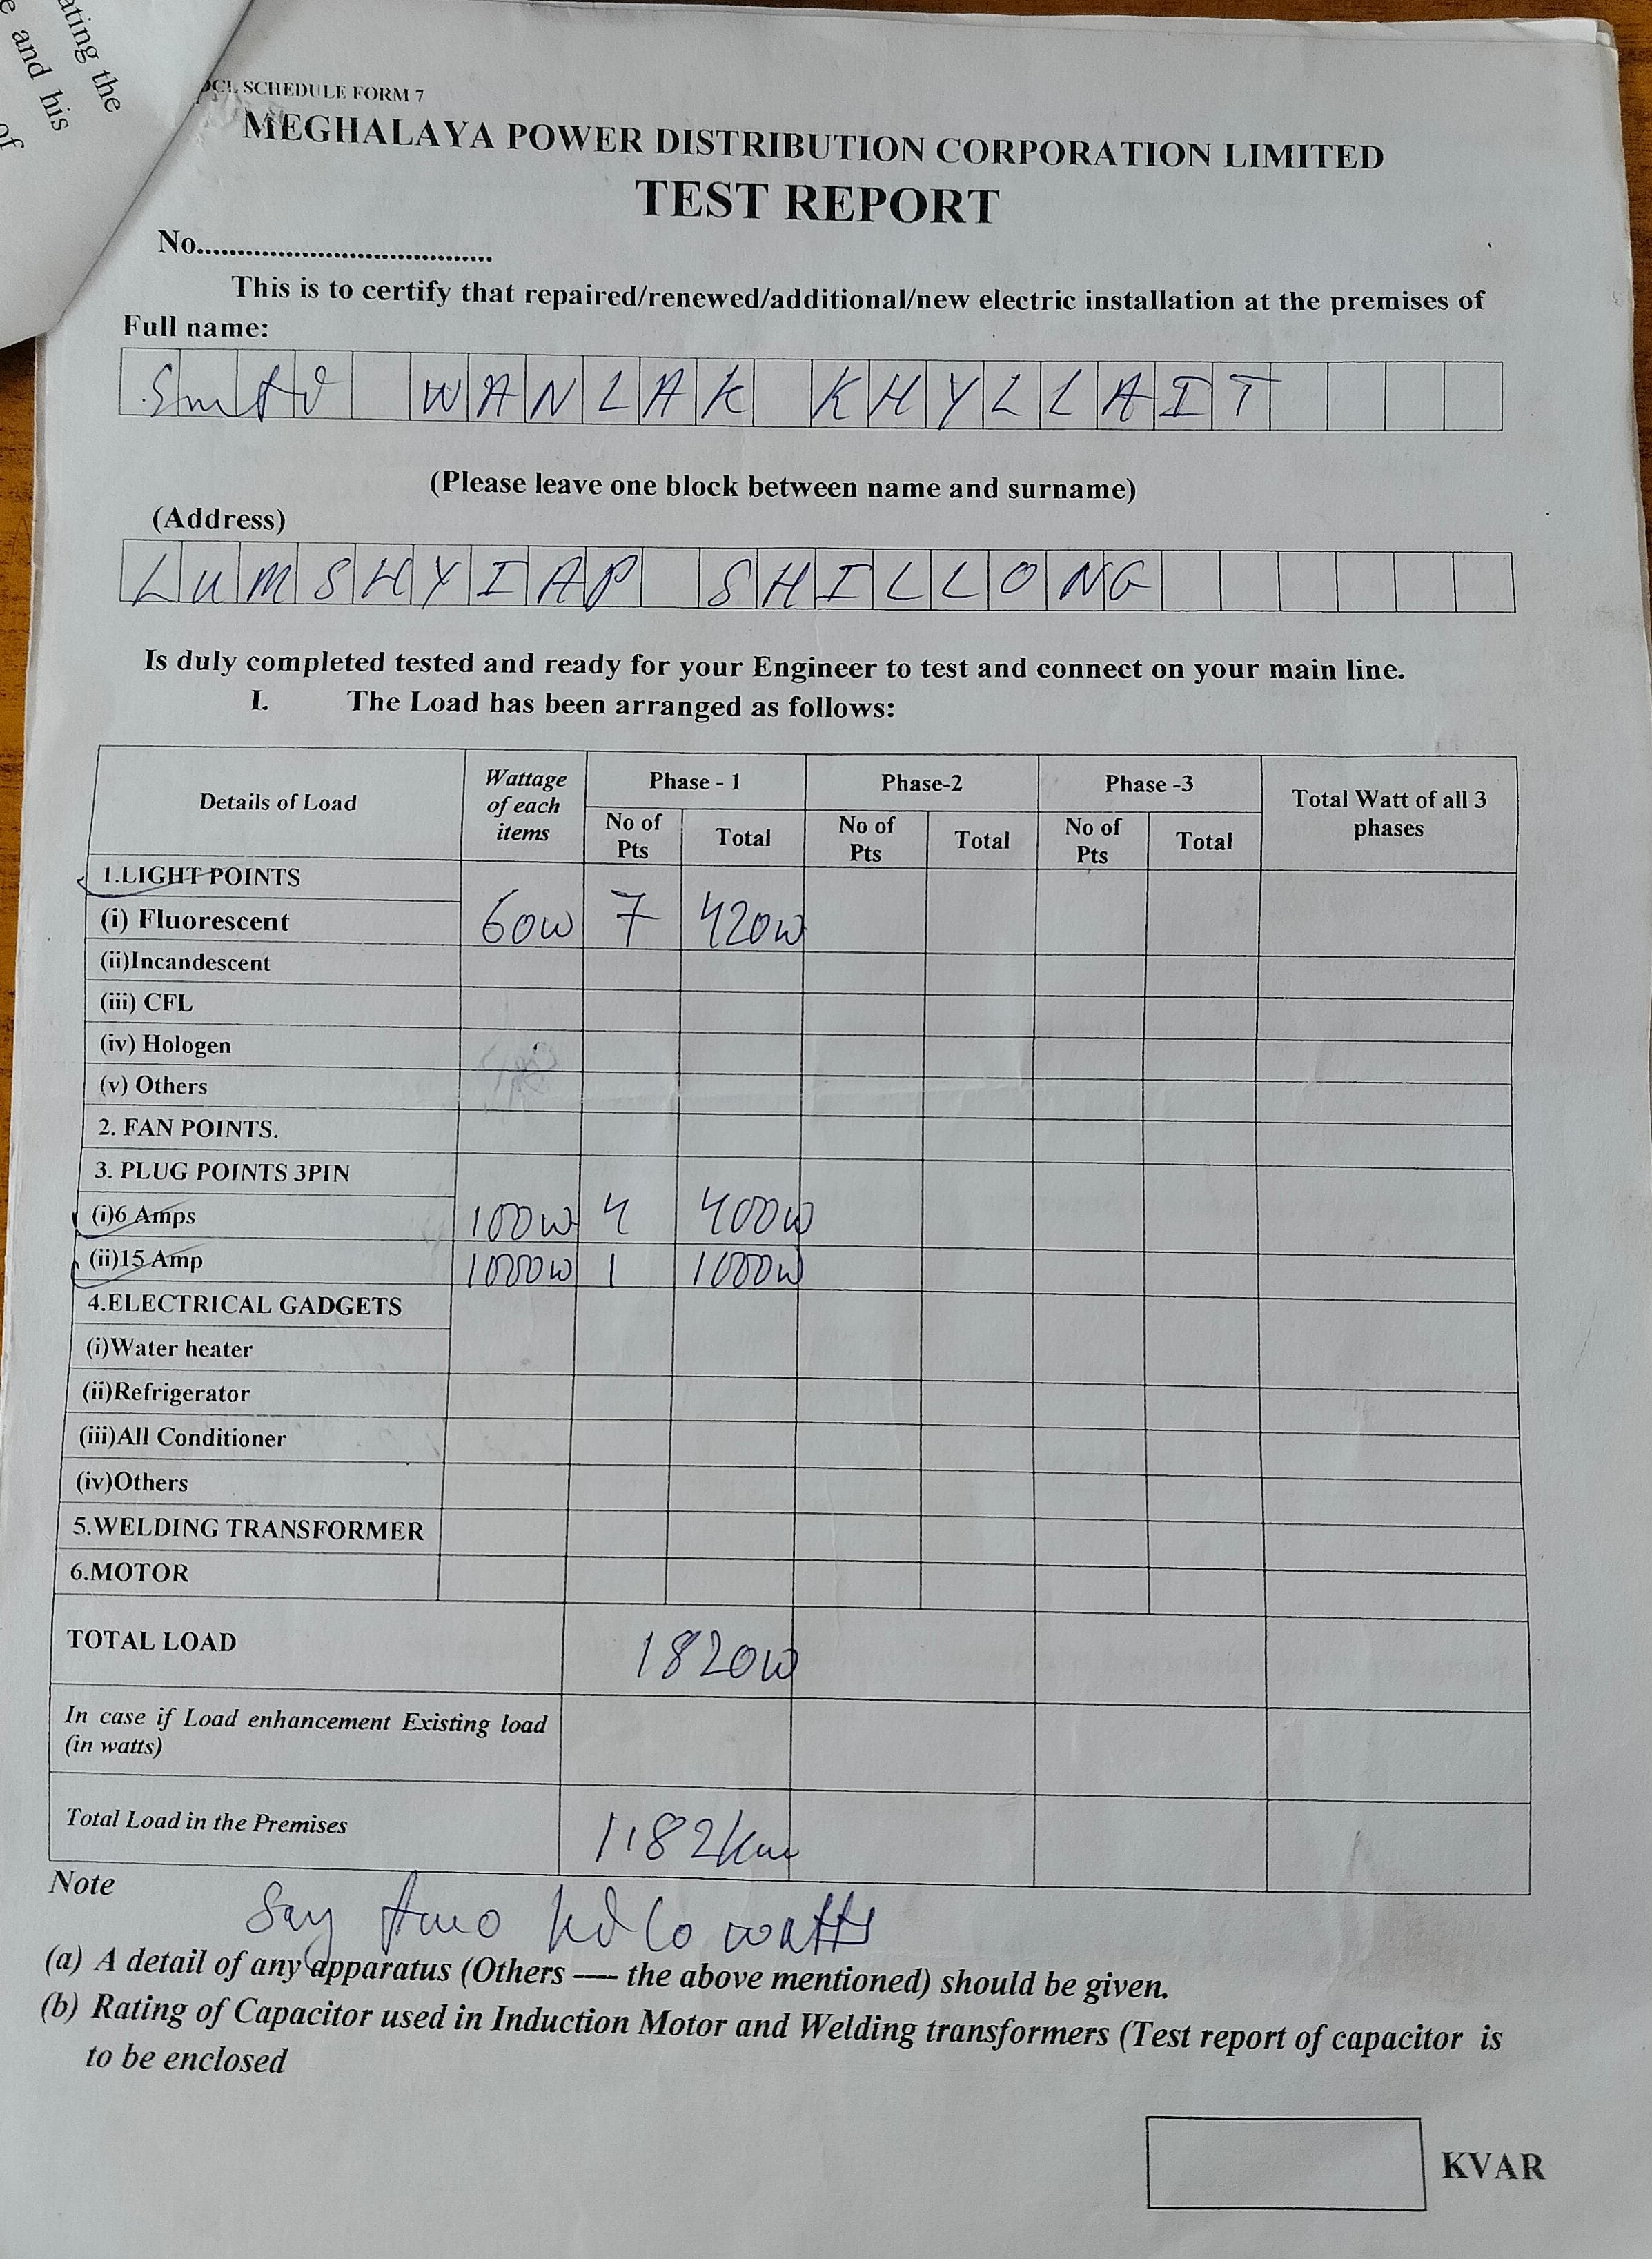 ating the
e and his
of
DCL SCHEDULE FORM 7
MEGHALAYA POWER DISTRIBUTION CORPORATION LIMITED
TEST REPORT
No.....................................
This is to certify that repaired/renewed/additional/new electric installation at the premises of
Full name:
WANLAK KHYLLAIT
(Please leave one block between name and surname)
(Address)
LUMSHYIAP SHILLONG
Is duly completed tested and ready for your Engineer to test and connect on your main line.
I. The Load has been arranged as follows:
Details of Load Wattage of each items Phase - 1 Phase-2 Phase -3 Total Watt of all 3 phases
No of Pts Total No of Pts Total No of Pts Total
1.LIGHT POINTS
(i) Fluorescent 60w 7 420w
(ii)Incandescent
(iii) CFL
(iv) Hologen
(v) Others
2. FAN POINTS.
3. PLUG POINTS 3PIN
(i)6 Amps 100w 4 400w
(ii)15 Amp 1000w 1 1000w
4.ELECTRICAL GADGETS
(i)Water heater
(ii)Refrigerator
(iii)All Conditioner
(iv)Others
5.WELDING TRANSFORMER
6.MOTOR
TOTAL LOAD 1820w
In case if Load enhancement Existing load
(in watts)
Total Load in the Premises 1.82kw
Note
Say two kilo watts
(a) A detail of any apparatus (Others — the above mentioned) should be given.
(b) Rating of Capacitor used in Induction Motor and Welding transformers (Test report of capacitor is
to be enclosed
KVAR